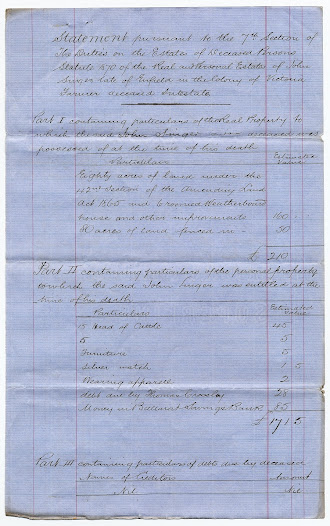 Statement pursuant to the 7th Section of
The Duties on the Estates of Deceased Persons
Statute 1870 of the Real and Personal Estate of John
Singer late of Enfield in the Colony of Victoria
Farmer deceased Intestate
Part I containing particulars of the Real Property to
which the said John Singer deceased was
possessed of at the time of his death
Particulars Estimated Value
Eighty acres of Land under the
42nd Section of the Amending Land
Act 1865 and 2 roomed Weatherboard
house and other improvements 160
80 acres of Land fenced in 50
£ 210
Part II containing particulars of the personal property
to which the said John Singer was entitled at the
time of his death
Particulars Estimated Value
15 Head of Cattle 45
5 5
Furniture 5
Silver watch 1 5
Wearing apparel 2
debt due by Thomas 28
Money in Ballarat Savings Bank 85
£ 171 5
Part III containing particulars of debts due by deceased
Names of Creditors Amount
Nil Nil